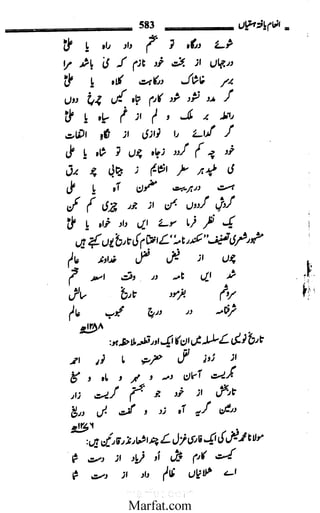 انعام یافتہ ہستیاں 583
شوئے درگاہ تو بختم داد راہ یا علیؓ
درجہاں از بخت خود نازم کہ می باشد مرا
برسر خاشاک درگاہت کلاہ یا علیؓ
گر مدد نشود شود کارم تباہ کیں چرخ دوں
رابط بر ملک و از غم سیاہ یا علیؓ
گر گدائے را نوازی از نگاہ التفات
خود چہ کم گردد زجاہ چوں تو شاہ یا علی
می طپد ہر سطر انشایم ز بیتابی چو برق
ہست در ہر بیت مضمون آہ یا علی
گردش گردوں بمن از جور چیزی کم نکن
یک نظر فرما سوئے ایں داد خواہ یا علیؓ
مشہور شعری تصنیف "سکندر نامہ" کے اختتام کی تاریخ یوں کہتے ہیں
چوں از فیض فضل خداوند عالم
شد ایں نامہ در وقت اسعد ختم
سروشم بفرمود تاریخ سالش
شرفنامہ در درج محبوب عالم
۱۲۸۸ھ
تاریخ نویسی کے سلسلہ میں ان کا ایک اور قطعہ ملاحظہ ہو:
از روز نقل حضرت ما نور احمد
بگریست آسمان و مہر و ماہ و میغ
تاریخش از خود جو بجستم گریست زار
درعین گریہ آہ زد و گفت بس دریغ
۱۲۷۶ھ
مولانا محمد فیض کی ایک فارسی غزل کے چند اشعار نذر قارئین ہیں:
کیست کارم پیش او فریاد از دست شما
اے ظالم داد از دست شما
Marfat.com